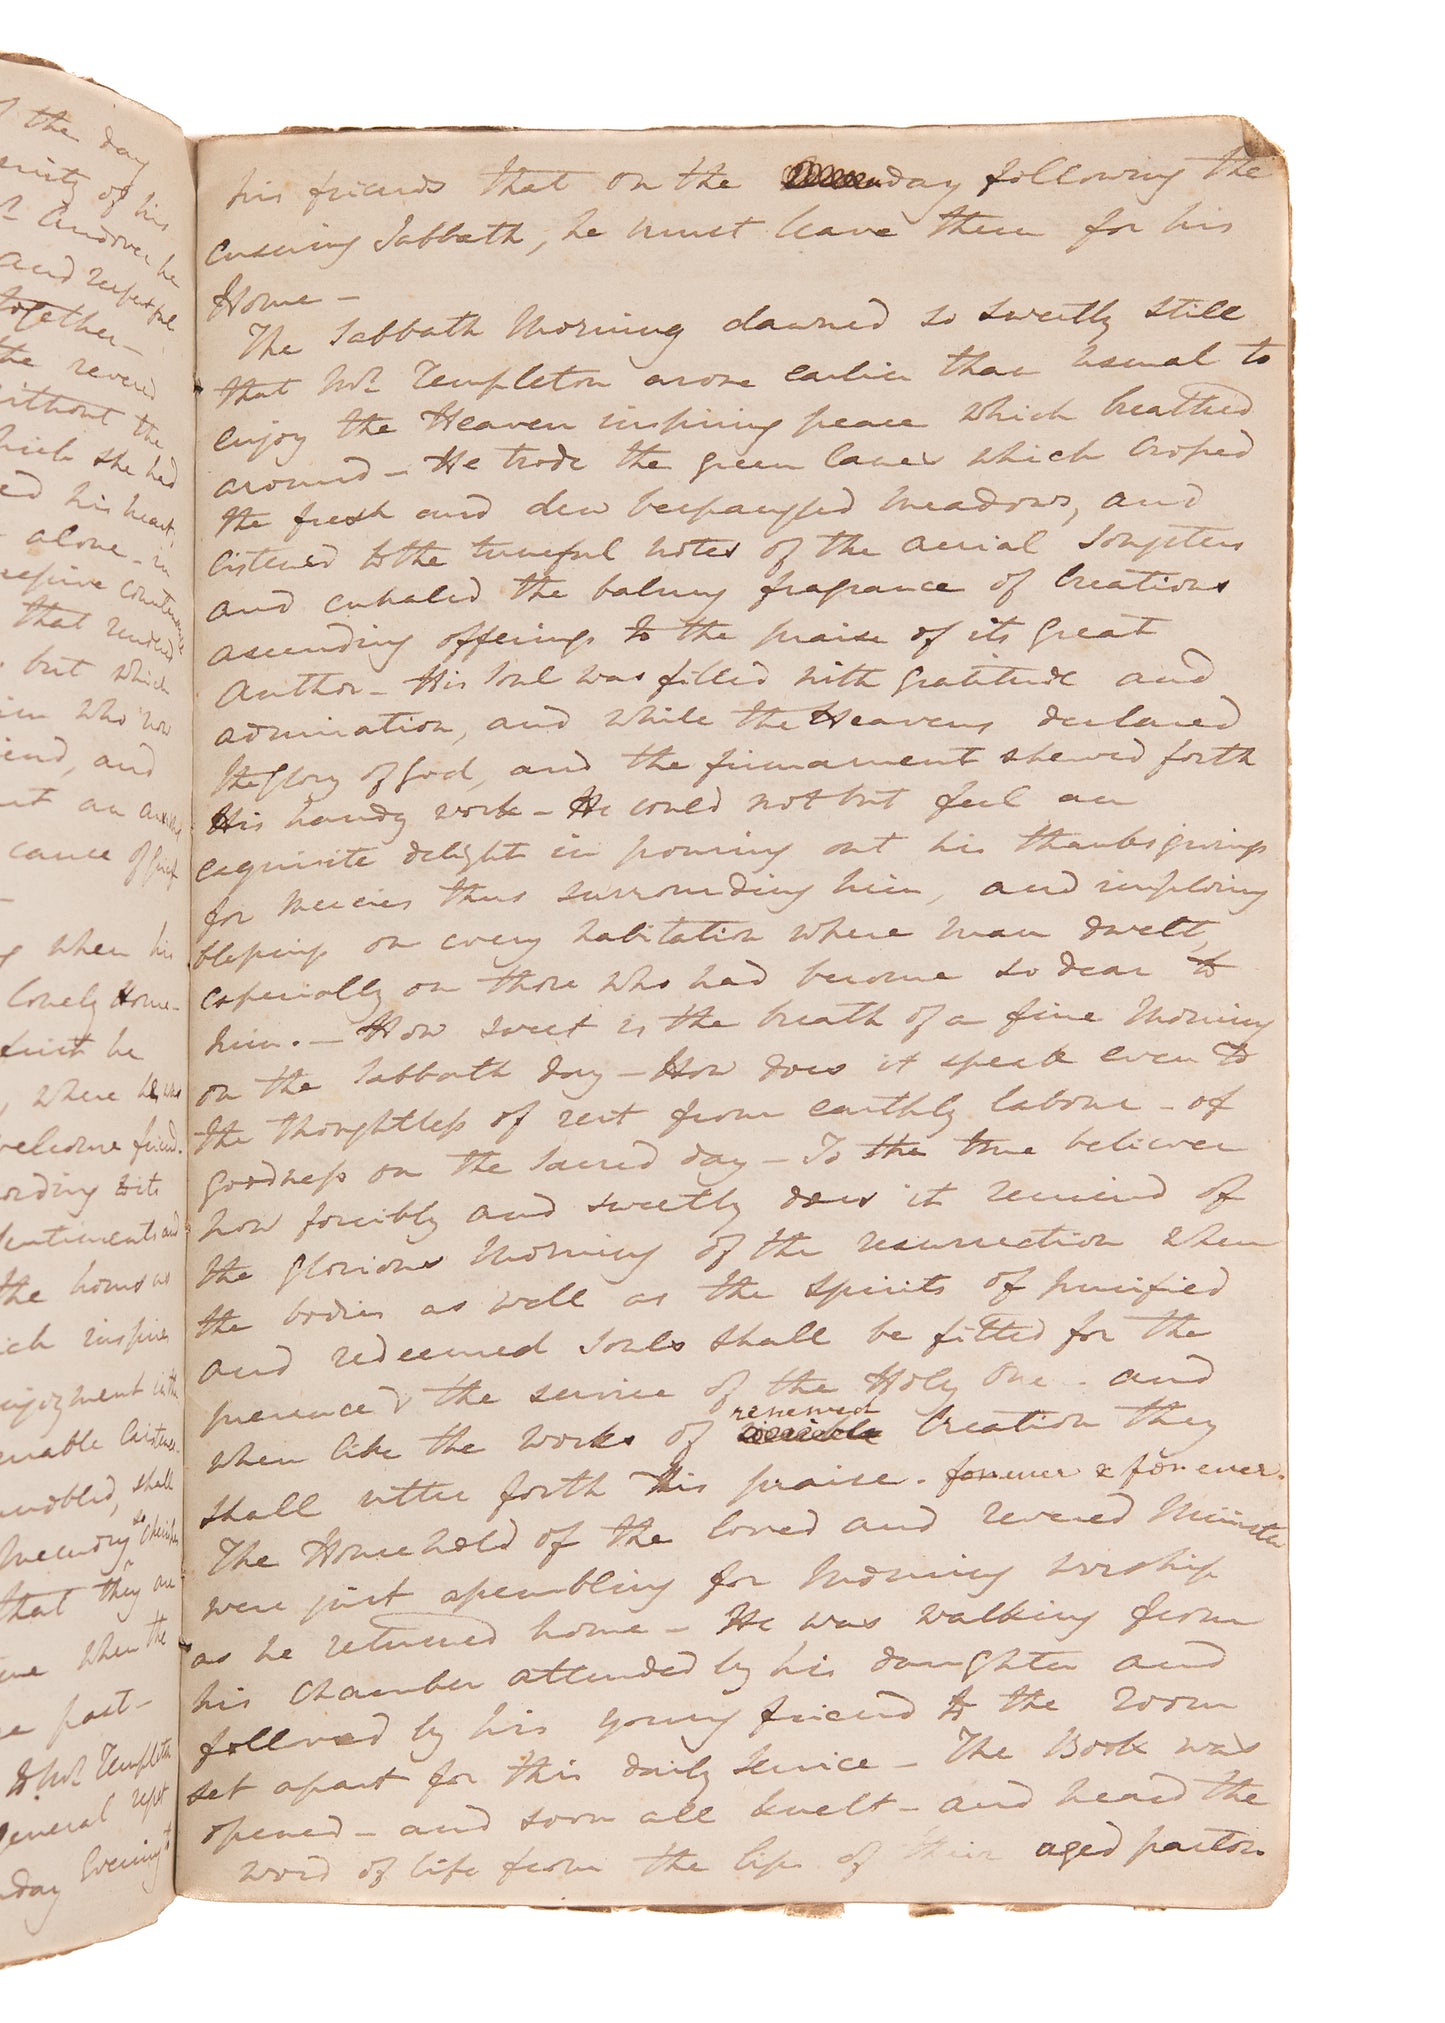 l the day
enity of his
Mr Andover he
and respectful
together-
the revered
without the
hich she had
ed his heart,
- alone - in
that rendered
. but which
im who now
iend, and
ut an
cause of grief
g when his
lonely Home-
first he
, where he was
welcome friend.
ording to its
Sentiments and
the home as
ich inspires
enjoyment
enobled, shall
Memory so
that they are
when the
e past-
to Mr Templeton
General
day Evening
his friends that on the day following the
ensuing Sabbath, he must leave them for his
Home -
The Sabbath Morning dawned so sweetly still
that Mr Templeton arose earlier than usual to
enjoy the Heaven inspiring peace which breathed
around - He trode the green lanes which croped
the fresh and dew bespangled meadows, and
listened to the tuneful notes of the aerial Songsters
and enhaled the balmy fragrance of Creations
ascending offerings to the praise of its Great
Author - His Soul was filled with gratitude and
admiration, and while the Heavens declared
the Glory of God, and the firmament shewed forth
His handy work - He could not but feel an
exquisite delight in pouring out his thanksgivings
for Mercies thus surrounding him, and imploring
blessings on every habitation where man dwelt,
especially on those who had become so dear to
him. - How sweet is the breath of a fine Morning
on the Sabbath day - How does it speak even to
the thoughtless of rest from earthly labour - of
goodness on the Sacred day - To the true believer
how forcibly and sweetly does it remind of
the glorious Morning of the resurrection when
the bodies as well as the spirits of purified
and redeemed Souls shall be fitted for the
presence & the service of the Holy One - and
when like the works of renewed Creation they
shall utter forth His praise. forever & forever.
The Household of the loved and revered Minister
were just assembling for Morning worship
as he returned home - He was walking from
his Chamber attended by his daughter and
followed by his young friend to the room
set apart for this daily Service - The Book was
opened - and soon all knelt - and heard the
word of life from the lips of their aged pastor